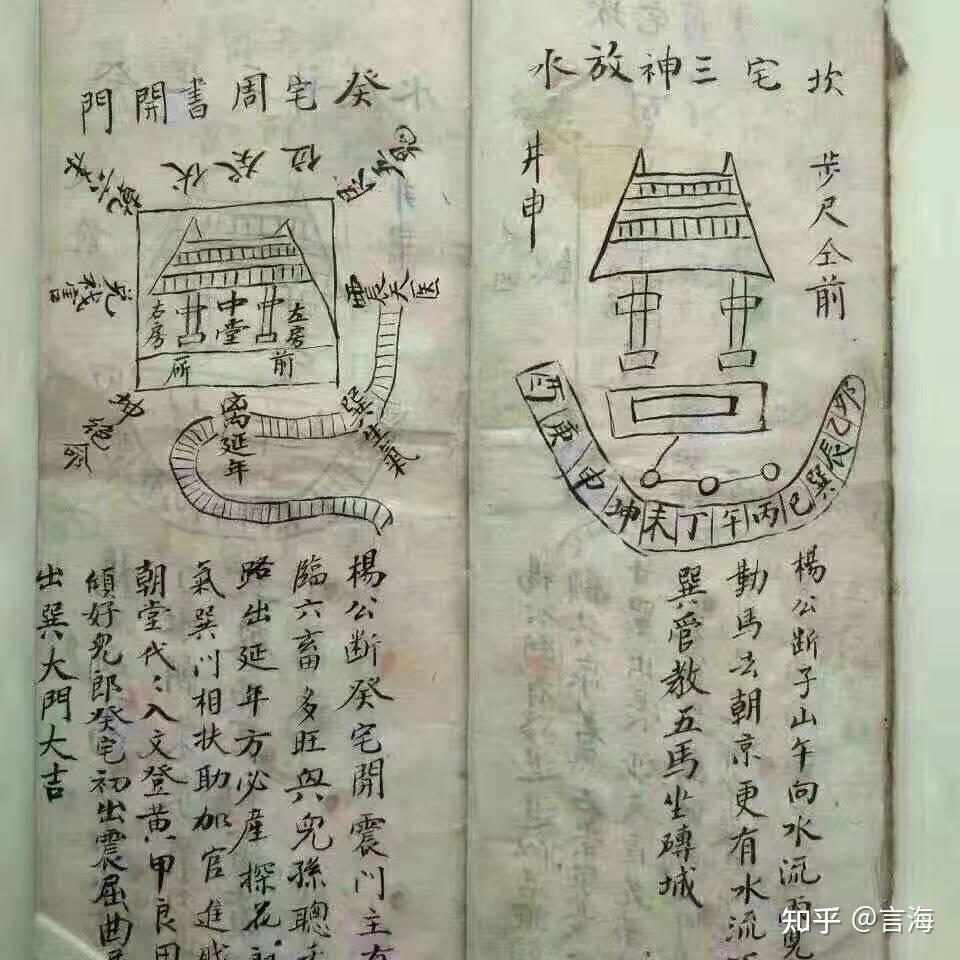 坎宅三神放水
步尺仝前
井申
酉庚申坤未丁午丙巳巽辰乙卯
楊公断子山午向水流
勒馬去朝京更有水流
巽管教五馬坐磚城
癸宅周書開門
位灰伏
震辰天医
巽生氣
离延年
絶命
左房
中堂
右房
前所
楊公断癸宅開震门主
臨六畜多旺與兒孫聰
路出延年方必産探花
氣巽门相扶助加官進
朝堂代〻入文登黄甲良田
傾好兒郎癸宅初出震屈曲
出巽大門大吉
知乎 @言海